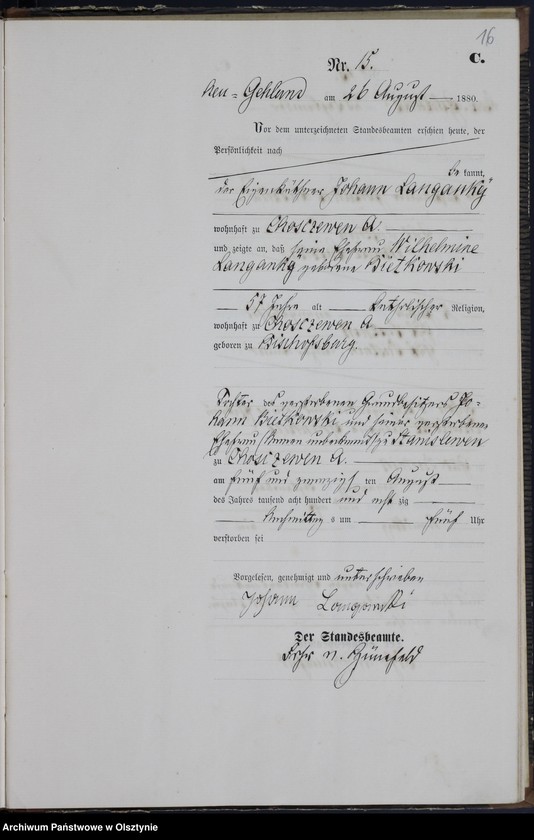 16
C.
Nr. 15.
Neu-Gehland am 26 August 1880.
Vor dem unterzeichneten Standesbeamten erschien heute, der
Persönlichkeit nach
bekannt,
der Eigenkäthner Johann Langanky
wohnhaft zu Chosczewen A.
und zeigte an, daß seine Ehefrau Wilhelmine
Langanky geborene Bietkowski
57 Jahre alt katholischer Religion,
wohnhaft zu Chosczewen A
geboren zu Bischofsburg
Tochter des verstorbenen Grundbesitzers Jo-
hann Bietkowski und seiner verstorbenen
Ehefrau, Namen unbekannt zu Stanislewen
zu Chosczewen A.
am fünf und zwanzigsten August
des Jahres tausend acht hundert und acht zig
Nachmittags um fünf Uhr
verstorben sei
Vorgelesen, genehmigt und unterschrieben
Johann Langanki
Der Standesbeamte.
Frhr v. Hünefeld
Archiwum Państwowe w Olsztynie